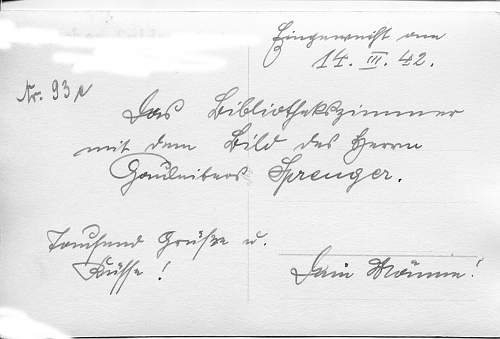 Eingeweiht am
14. III. 42.
Nr. 93
Das Bibliothekszimmer
mit dem Bild des Herrn
Gauleiters Sprenger.
Tausend Grüße u.
Küsse!
Dein Männe!